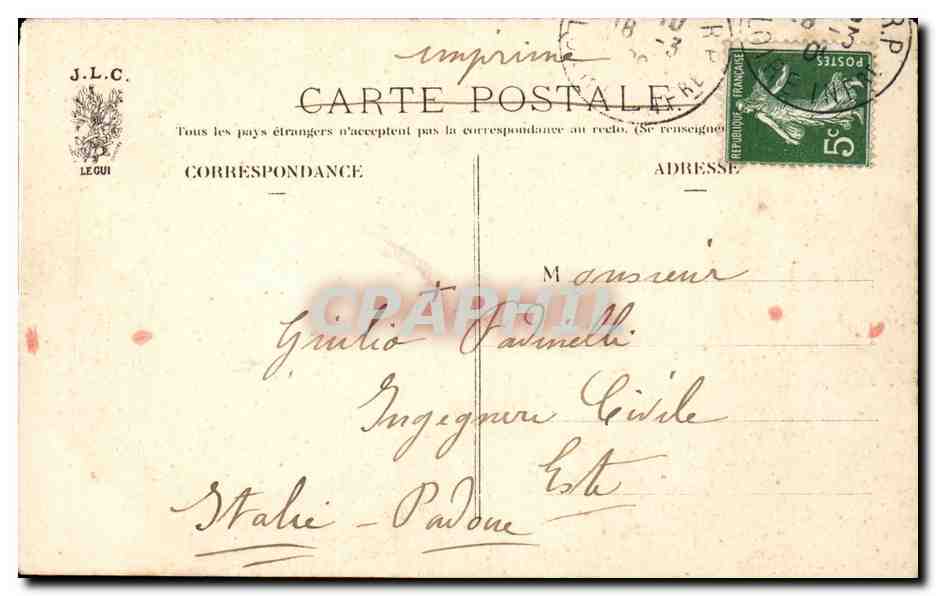 imprimé
J.L.C.
LE GUI
CARTE POSTALE
Tous les pays étrangers n'acceptent pas la correspondance au recto. (Se renseigne
CORRESPONDANCE
ADRESSE
REPUBLIQUE FRANÇAISE
POSTES
5c
Monsieur
Giulio Padinelli
Ingegnere Civile
Este
Italie - Padoue
CPAPHIL